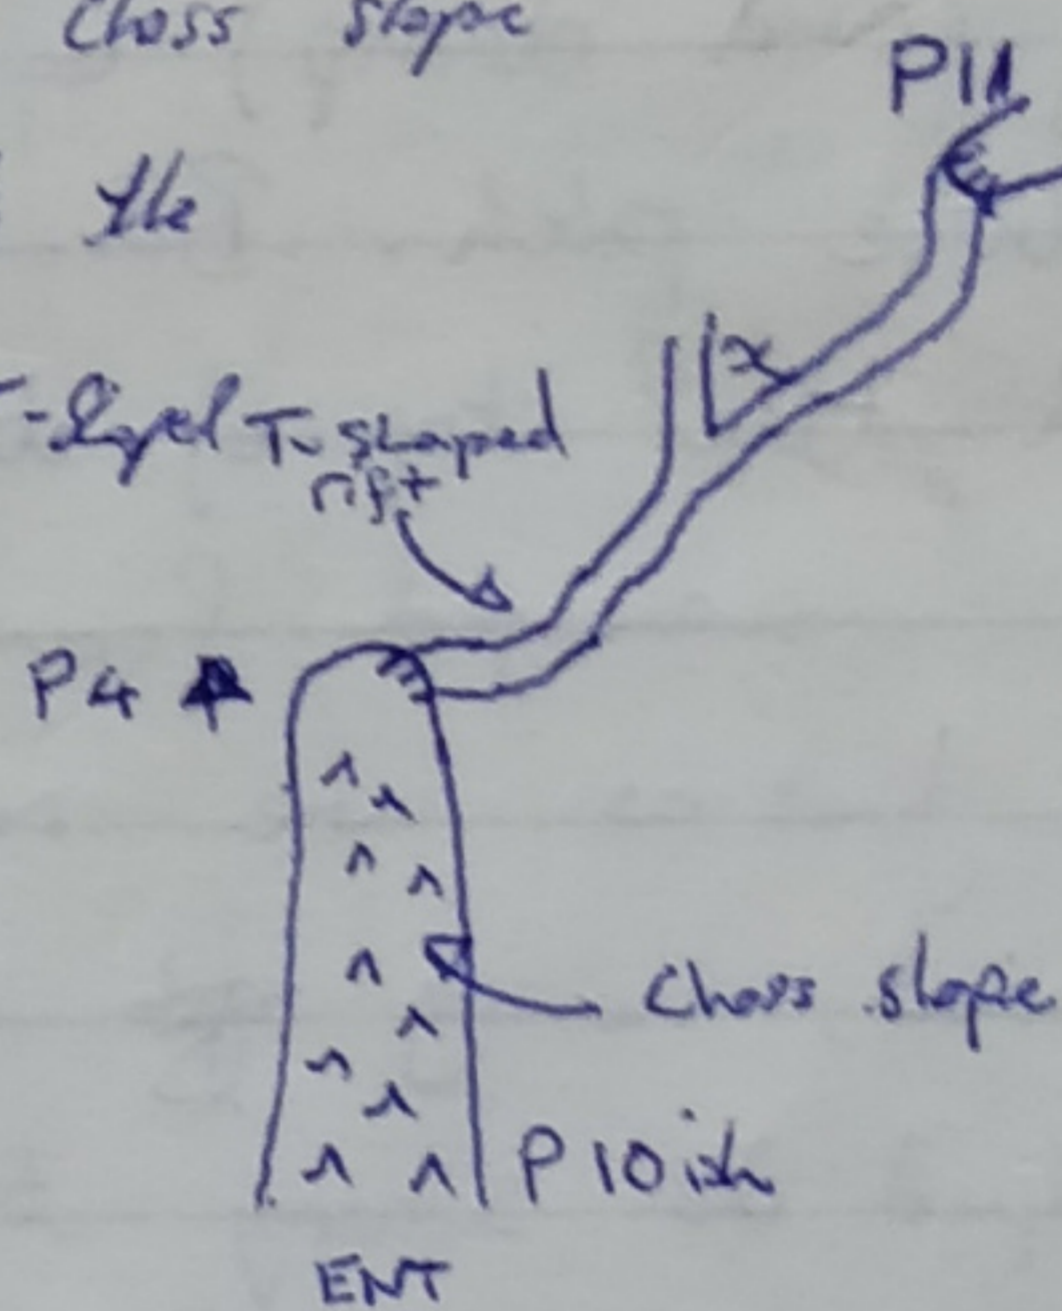 Choss slope
P11
the
T-shaped
rift
P4
Choss slope
P10ish
ENT